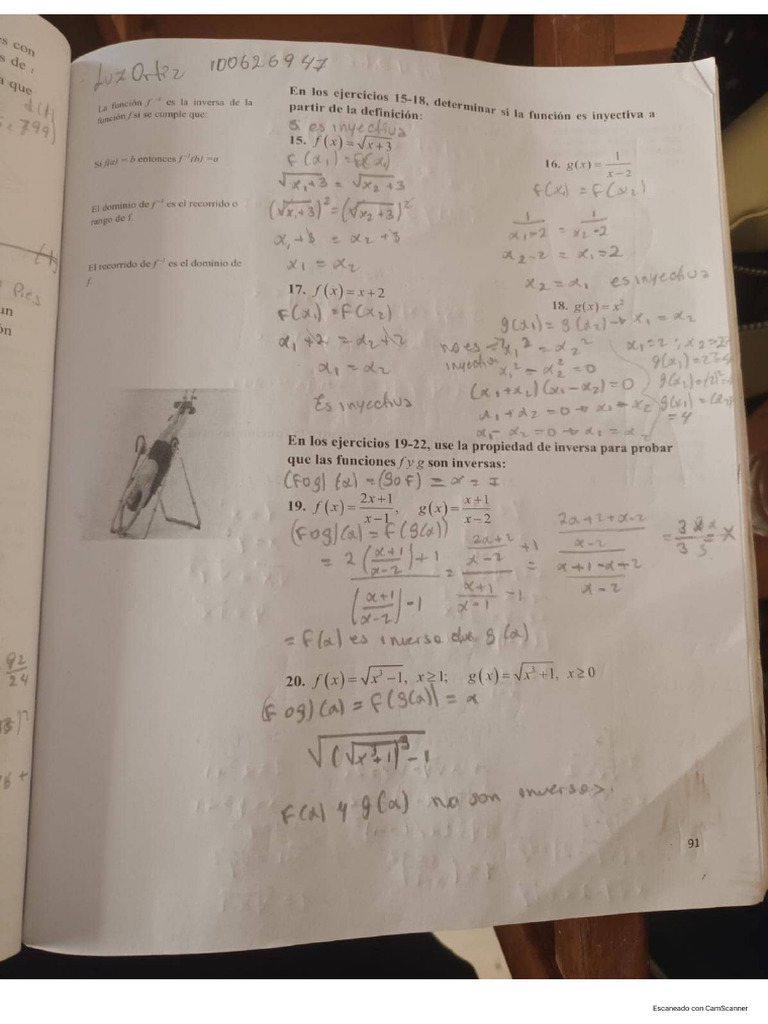 Luz Ortiz 100626947
La función f⁻¹ es la inversa de la
función f si se cumple que:
Si f(a) = b entonces f⁻¹(b) = a
El dominio de f⁻¹ es el recorrido o
rango de f.
El recorrido de f⁻¹ es el dominio de
f.
En los ejercicios 15-18, determinar si la función es inyectiva a
partir de la definición:
Si es inyectiva
15. f(x) = √(x+3)
f(x₁) = f(x₁)
√(x₁+3) = √(x₂+3)
(√(x₁+3))² = (√(x₂+3))²
x₁+3 = x₂+3
x₁ = x₂
16. g(x) = 1/(x−2)
f(x₁) = f(x₂)
1/(x₁−2) = 1/(x₂−2)
x₂−2 = x₁−2
x₂ = x₁ es inyectiva
17. f(x) = x+2
f(x₁) = f(x₂)
x₁+2 = x₂+2
x₁ = x₂
Es inyectiva
18. g(x) = x²
g(x₁) = g(x₂) → x₁ = x₂
no es inyectiva
x₁² = x₂²
x₁² − x₂² = 0
(x₁+x₂)(x₁−x₂) = 0
x₁+x₂ = 0 → x₁ − x₂
x₁ − x₂ = 0 → x₁ = x₂
= 4
En los ejercicios 19-22, use la propiedad de inversa para probar
que las funciones f y g son inversas:
(fog)(x) = (gof) = x = I
19. f(x) = (2x+1)/(x−1), g(x) = (x+1)/(x−2)
(fog)(x) = f(g(x))
= (2((x+1)/(x−2))+1)/(((x+1)/(x−2))−1) = ((2x+2)/(x−2)+1)/((x+1)/(x−1)−1) = ((2x+2+x−2)/(x−2))/((x+1−x+2)/(x−2)) = x
= f(x) es inversa de g(x)
20. f(x) = √(x³−1), x ≥ 1; g(x) = √(x³+1), x ≥ 0
(fog)(x) = f(g(x)) = x
√((√(x³+1))³−1)
f(x) y g(x) no son inversas.
91
Escaneado con CamScanner